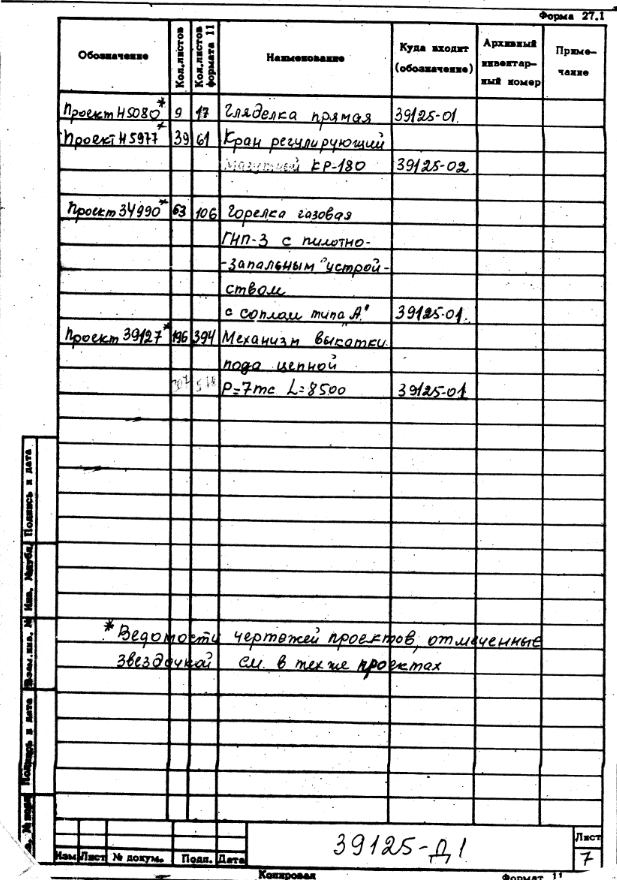 Форма 27.1
Обозначение Кол.листов Кол.листов формата 11 Наименование Куда входит (обозначение) Архивный инвентарный номер Примечание
Проект Н5080* 9 17 Гляделка прямая 39125-01
Проект Н5977* 39 61 Кран регулирующий
мазутный КР-180 39125-02
Проект 34990* 63 106 Горелка газовая
ГНП-3 с пилотно-
-запальным устрой-
ством
с соплом типа "А" 39125-01.
Проект 39127* 196 394 Механизм выкатки
пода цепной
Р=7тс L=8500 39125-01
* Ведомости чертежей проектов, отмеченные
звездочкой см. в тех же проектах
Подпись и дата
Инв. № дубл.
Взам.инв. №
Подпись и дата
39125-Д1
Лист
7
Изм Лист № докум. Подп. Дата
Копировал Формат 11